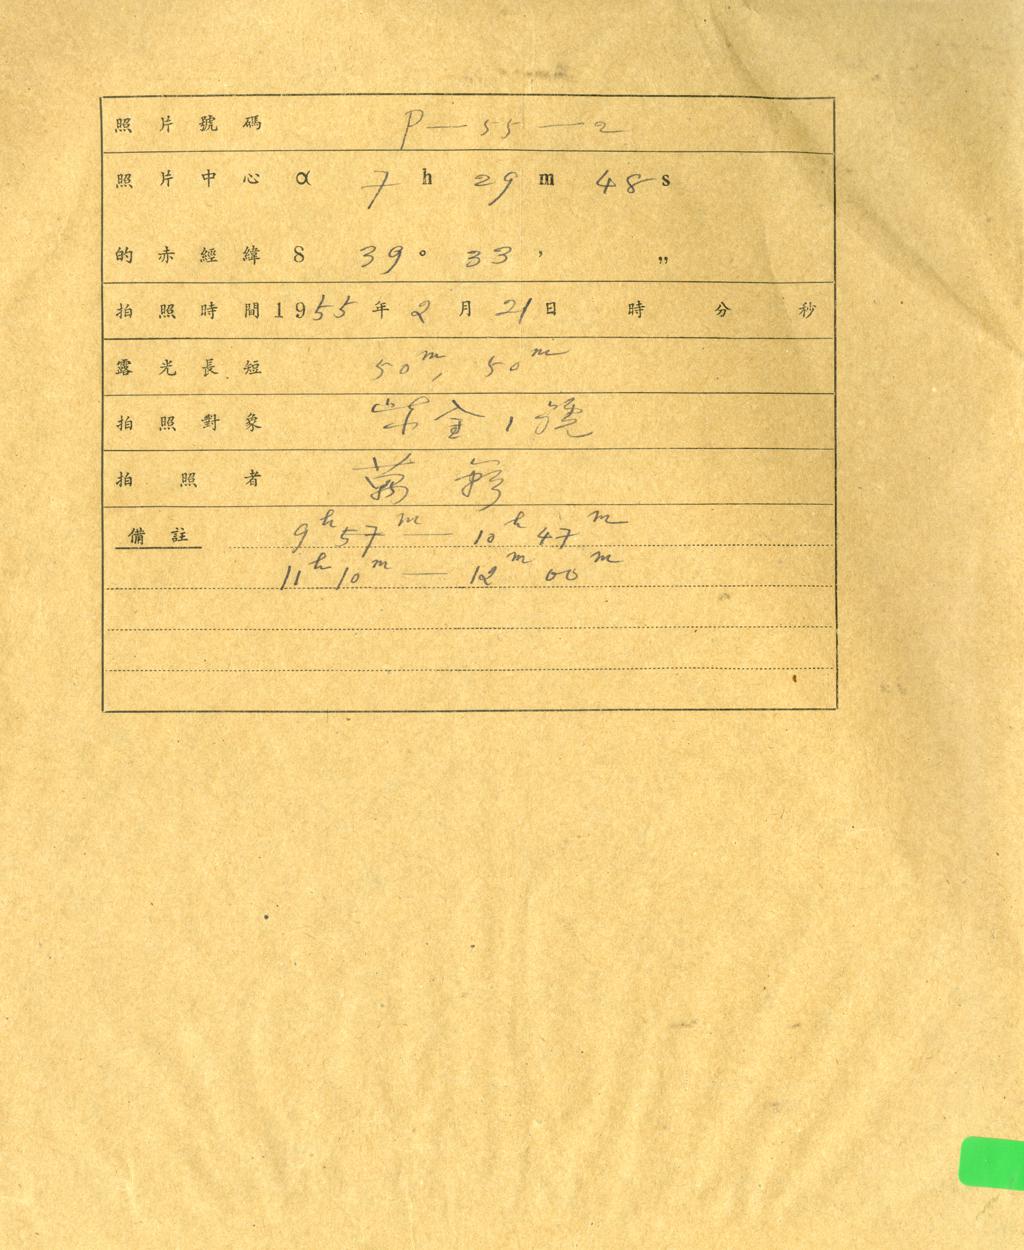 照片號碼 P—55—2
照片中心 α 7 h 29 m 48 s
的赤經緯 δ 39° 33 ′ ″
拍照時間 1955 年 2 月 21 日 時 分 秒
露光長短 50m, 50m
拍照對象 紫金1號
拍照者
備註 9h 57m — 10h 47m
11h 10m — 12m 00m